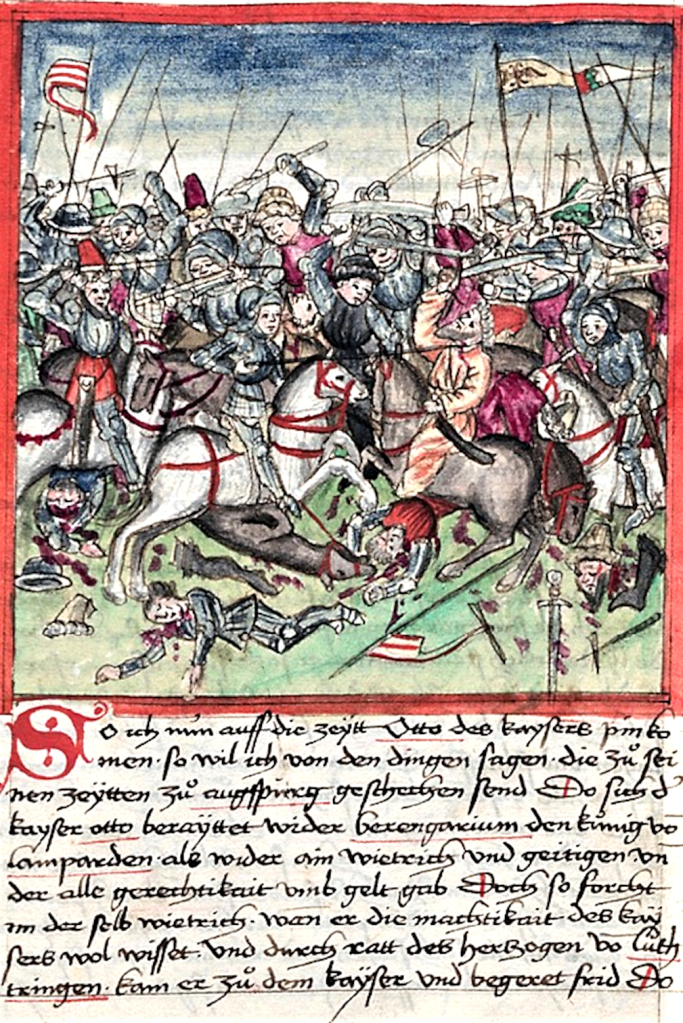 So ich nun auff die zeytt Otto des kaysers pin ko
men · so wil ich von den dingen sagen · die zů sei
nen zeytten zů augspurg geschechen send Do sich d'
kayser otto berayttet wider berengarium den kůnig vo
lamparden · als wider ain wietrich vnd geitigen vn
der alle gerechtikait vmb gelt gab Doch so forcht
im der selb wietrich · wan er die machtikait des kay
sers wol wisset · vnd durch ratt des hertzogen vo luth
tringen · kam er zů dem kayser vnd begeret frid Do